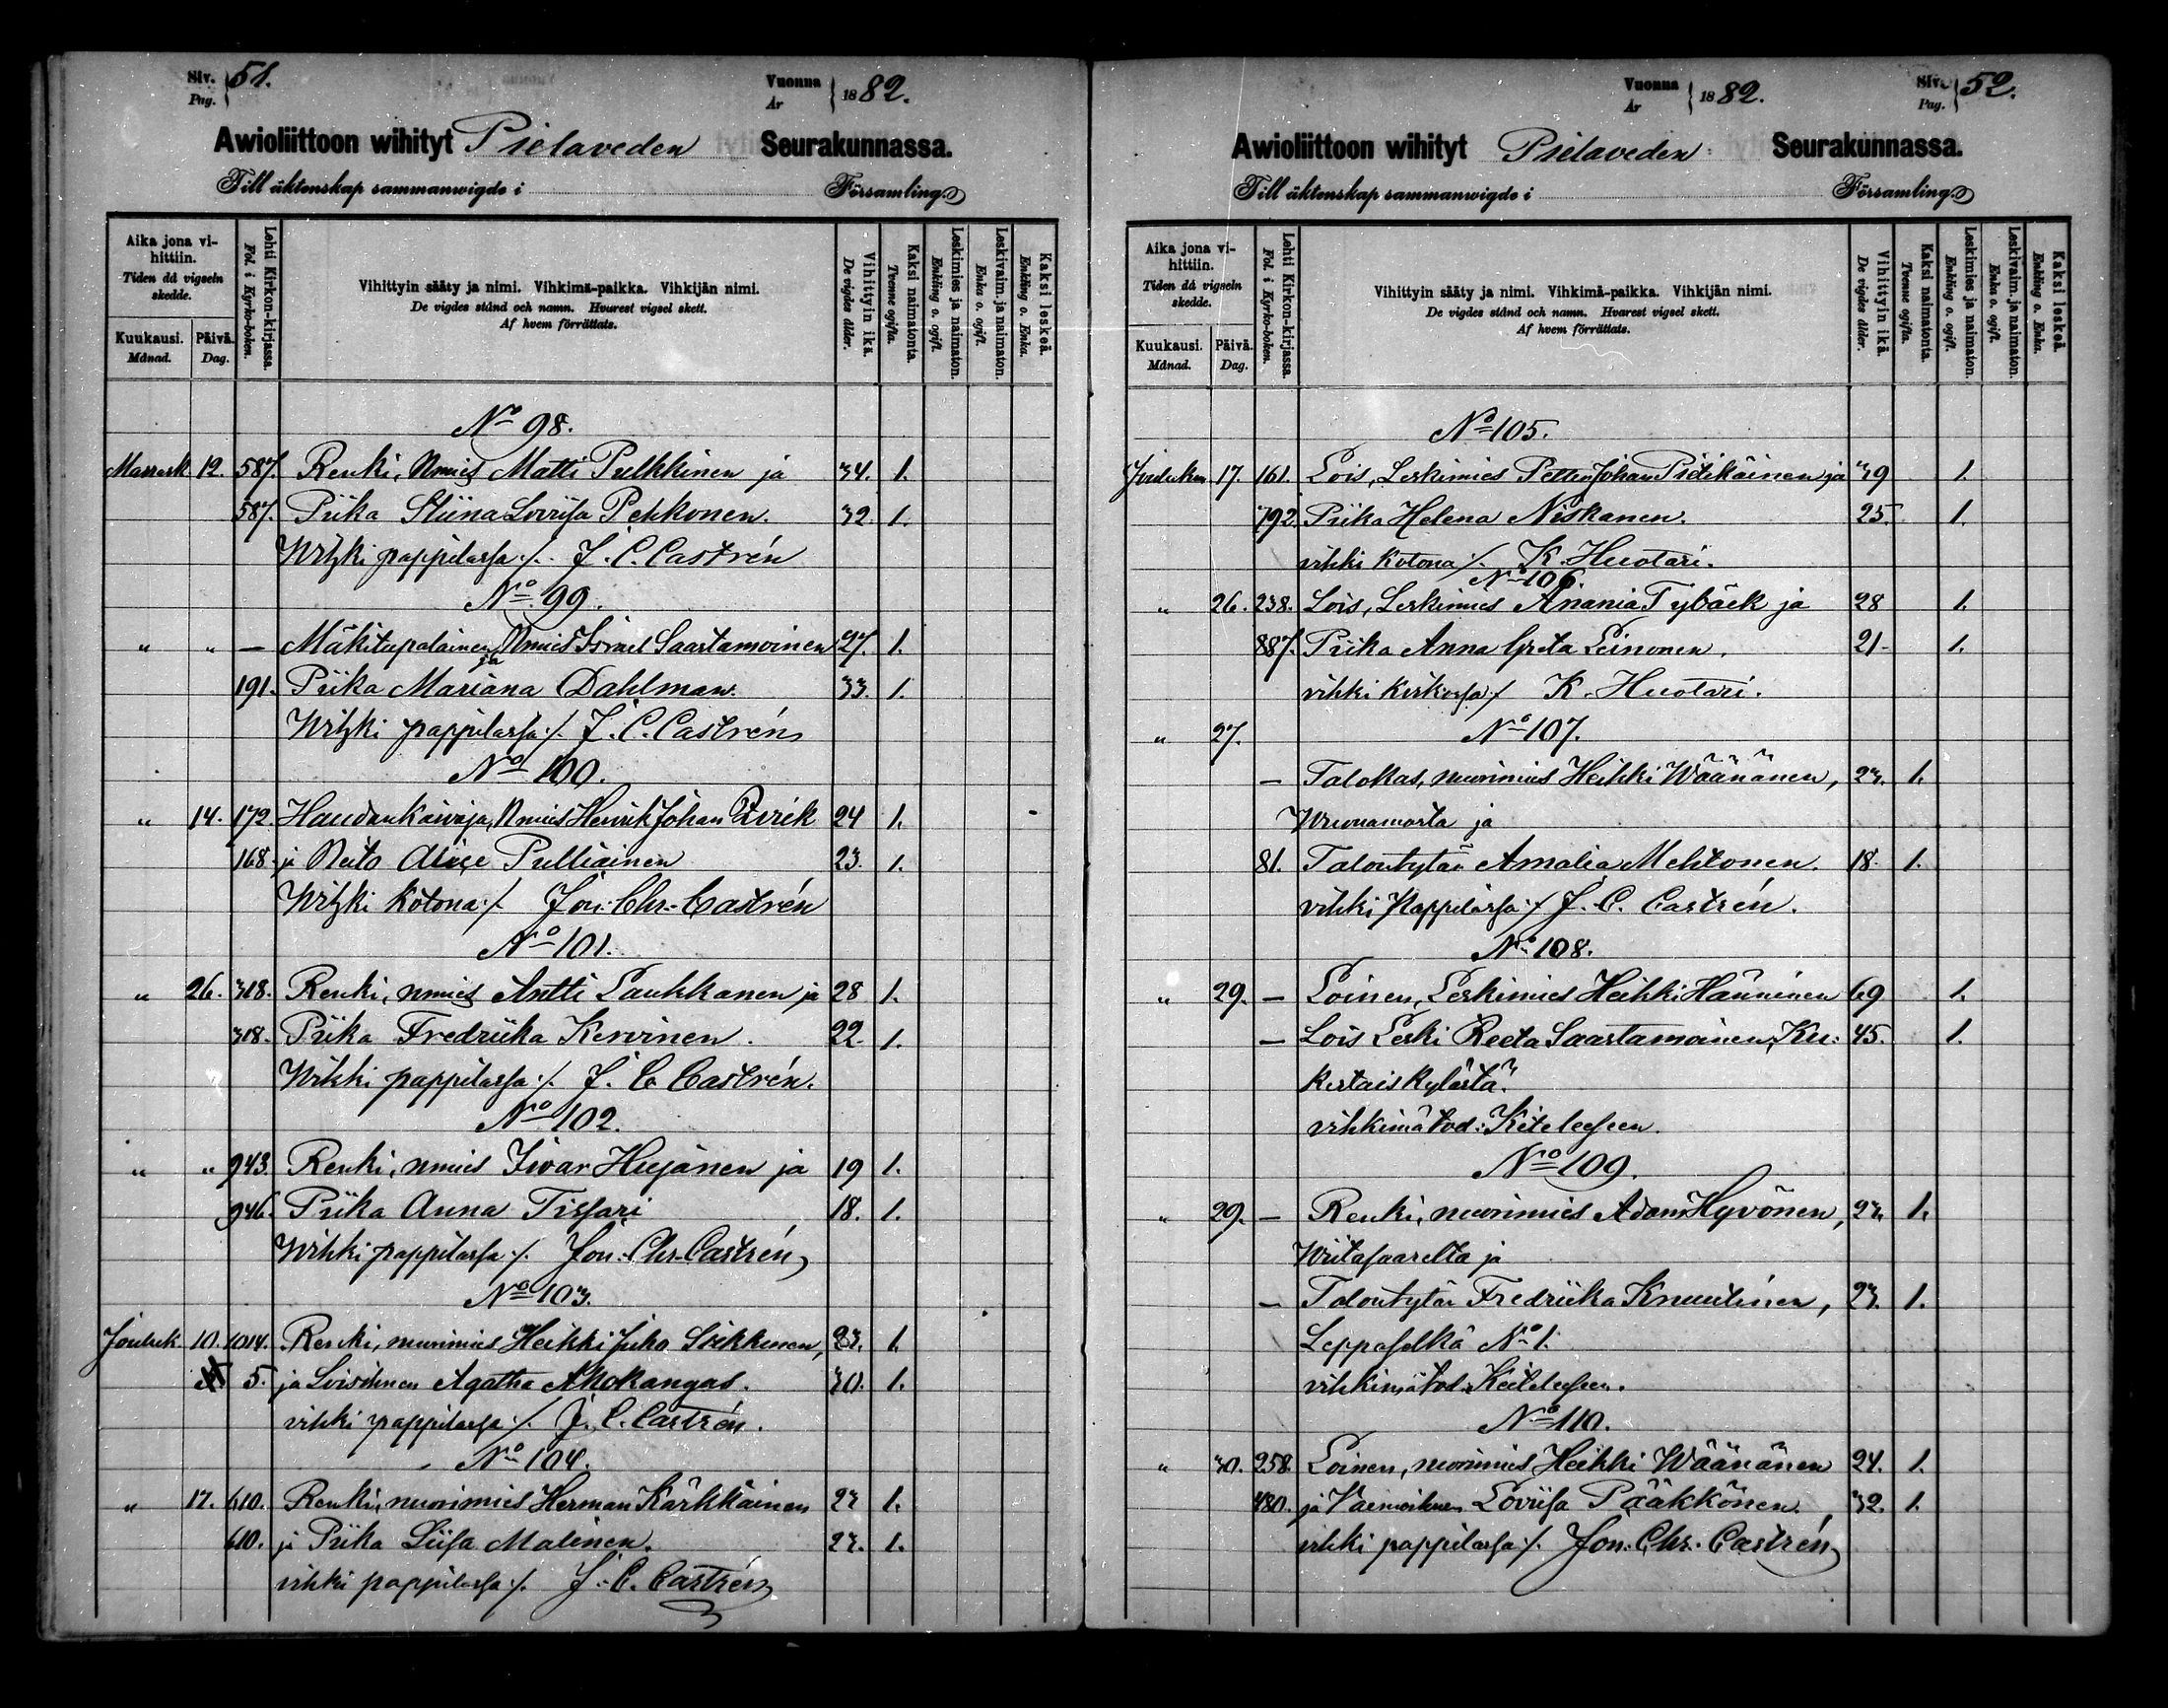 Siv. 51.
Pag.
Vuonna 1882.
År
Awioliittoon wihityt Pielaveden Seurakunnassa.
Till äktenskap sammanwigde i Församling.
Aika jona vihittiin.
Tiden då vigseln skedde.
Kuukausi. Månad.
Päivä. Dag.
Lehti Kirkon-kirjassa.
Fol. i Kyrko-boken.
Vihittyin sääty ja nimi. Vihkimä-paikka. Vihkijän nimi.
De vigdes stånd och namn. Hvarest vigsel skett.
Af hvem förrättats.
Vihittyin ikä.
De vigdes ålder.
Kaksi naimatonta.
Tvenne ogifta.
Leskimies ja naimaton.
Enkling o. ogift.
Leskivaim. ja naimaton.
Enka o. ogift.
Kaksi leskeä.
Enkling o. Enka.
No 98.
Marrask. 12. 587. Renki, Nmies Matti Pulkkinen ja 34. 1.
587. Piika Stiina Lovisa Pekkonen. 32. 1.
Wihki pappilassa ./. J. C. Castrén
No 99.
" " — Mäkitupalainen, Nmies Israel Saastamoinen ja 27. 1.
191. Piika Mariana Dahlman. 33. 1.
Wihki pappilassa ./. J. C. Castrén
No 100.
" 14. 172. Haudankaivaja, Nmies Henrik Johan 24 1.
168. ja Neito Pulliainen 23. 1.
Wihki kotona ./. Jon. Chr. Castrén
No 101.
" 26. 318. Renki, nmies Antti Laukkanen ja 28 1.
318. Piika Fredriika Kervinen. 22. 1.
Wihki pappilassa ./. J. C. Castrén.
No 102.
" " 943. Renki, nmies Iivar Hujanen ja 19 1.
946. Piika Anna Tissari 18. 1.
Wihki pappilassa ./. Jon. Chr. Castrén
No 103.
Jouluk. 10. 1014. Renki, nuorimies Heikki Juho 23. 1.
5. ja Agatha Ahokangas. 30. 1.
vihki pappilassa ./. J. C. Castrén.
No 104.
" 17. 610. Renki, nuorimies Herman Kärkkäinen 23 1.
610. ja Piika Liisa Malinen. 23. 1.
vihki pappilassa ./. J. C. Castrén
Vuonna 1882.
År
Siv. 52.
Pag.
Awioliittoon wihityt Pielaveden Seurakunnassa.
Till äktenskap sammanwigde i Församling.
Aika jona vihittiin.
Tiden då vigseln skedde.
Kuukausi. Månad.
Päivä. Dag.
Lehti Kirkon-kirjassa.
Fol. i Kyrko-boken.
Vihittyin sääty ja nimi. Vihkimä-paikka. Vihkijän nimi.
De vigdes stånd och namn. Hvarest vigsel skett.
Af hvem förrättats.
Vihittyin ikä.
De vigdes ålder.
Kaksi naimatonta.
Tvenne ogifta.
Leskimies ja naimaton.
Enkling o. ogift.
Leskivaim. ja naimaton.
Enka o. ogift.
Kaksi leskeä.
Enkling o. Enka.
No 105.
Joulukuu 17. 161. Lois, Leskimies Petter Johan Pietikäinen ja 39 1.
792. Piika Helena Niskanen. 25. 1.
vihki kotona ./. K. Huotari.
No 106.
" 26. 238. Lois, Leskimies Anania Tybäck ja 28 1.
887. Piika Anna Greta Leinonen. 21. 1.
vihki kirkossa ./. K. Huotari.
" 27. No 107.
— Talokas, nuorimies Heikki Wäänänen, 23. 1.
Wuonamosta ja
81. Talontytär Amalia Mehtonen. 18. 1.
vihki Pappilassa ./. J. C. Castrén.
No 108.
" 29. — Loinen, Leskimies Heikki Hänninen 69 1.
— Lois Leski Reeta Saastamoinen, Ku- 45. 1.
kertaiskylästä.
vihkimätod: Keiteleeseen.
No 109.
" 29. — Renki, nuorimies Adam Hyvönen, 23. 1.
Wiitasaarelta ja
— Talontytär Fredriika Knuutinen, 23. 1.
Leppäselkä No 1.
vihkimätod: Keiteleeseen.
No 110.
" 30. 258. Loinen, nuorimies Heikki Wäänänen 24. 1.
480. ja Vaimoihmen Loviisa Pääkkönen. 32. 1.
vihki pappilassa ./. Jon. Chr. Castrén